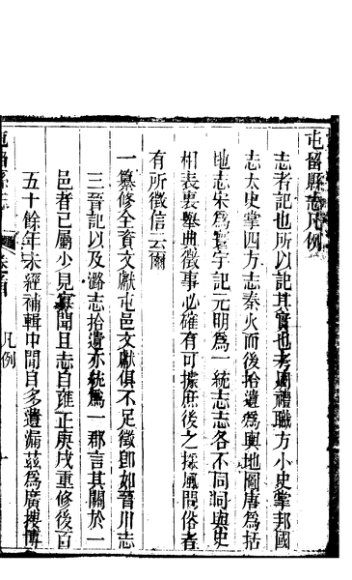 屯留縣志凡例
志者記也所以記其實也考周禮職方小史掌邦國
志太史掌四方志秦火而後拾遺爲輿地圖唐爲括
地志宋爲寰宇記元明爲一統志志各不同同與史
相表裏舉典徵事必確有可據庶後之採風問俗者
有所徵信云爾
一纂修全資文獻屯邑文獻俱不足徵卽如晉川志
三晉記以及潞志拾遺亦統爲一郡言其關於一
邑者已屬少見寡聞且志自雍正庚戌重修後百
五十餘年未經補輯中間自多遺漏茲爲廣搜博
凡例